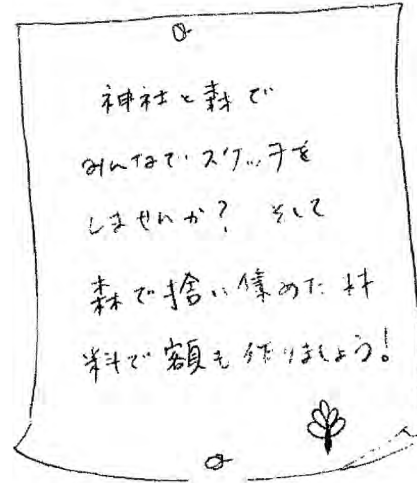 神社と森で
みんなで スケッチを
しませんか? そして
森で捨い集めた 材
料で額も作りましょう!